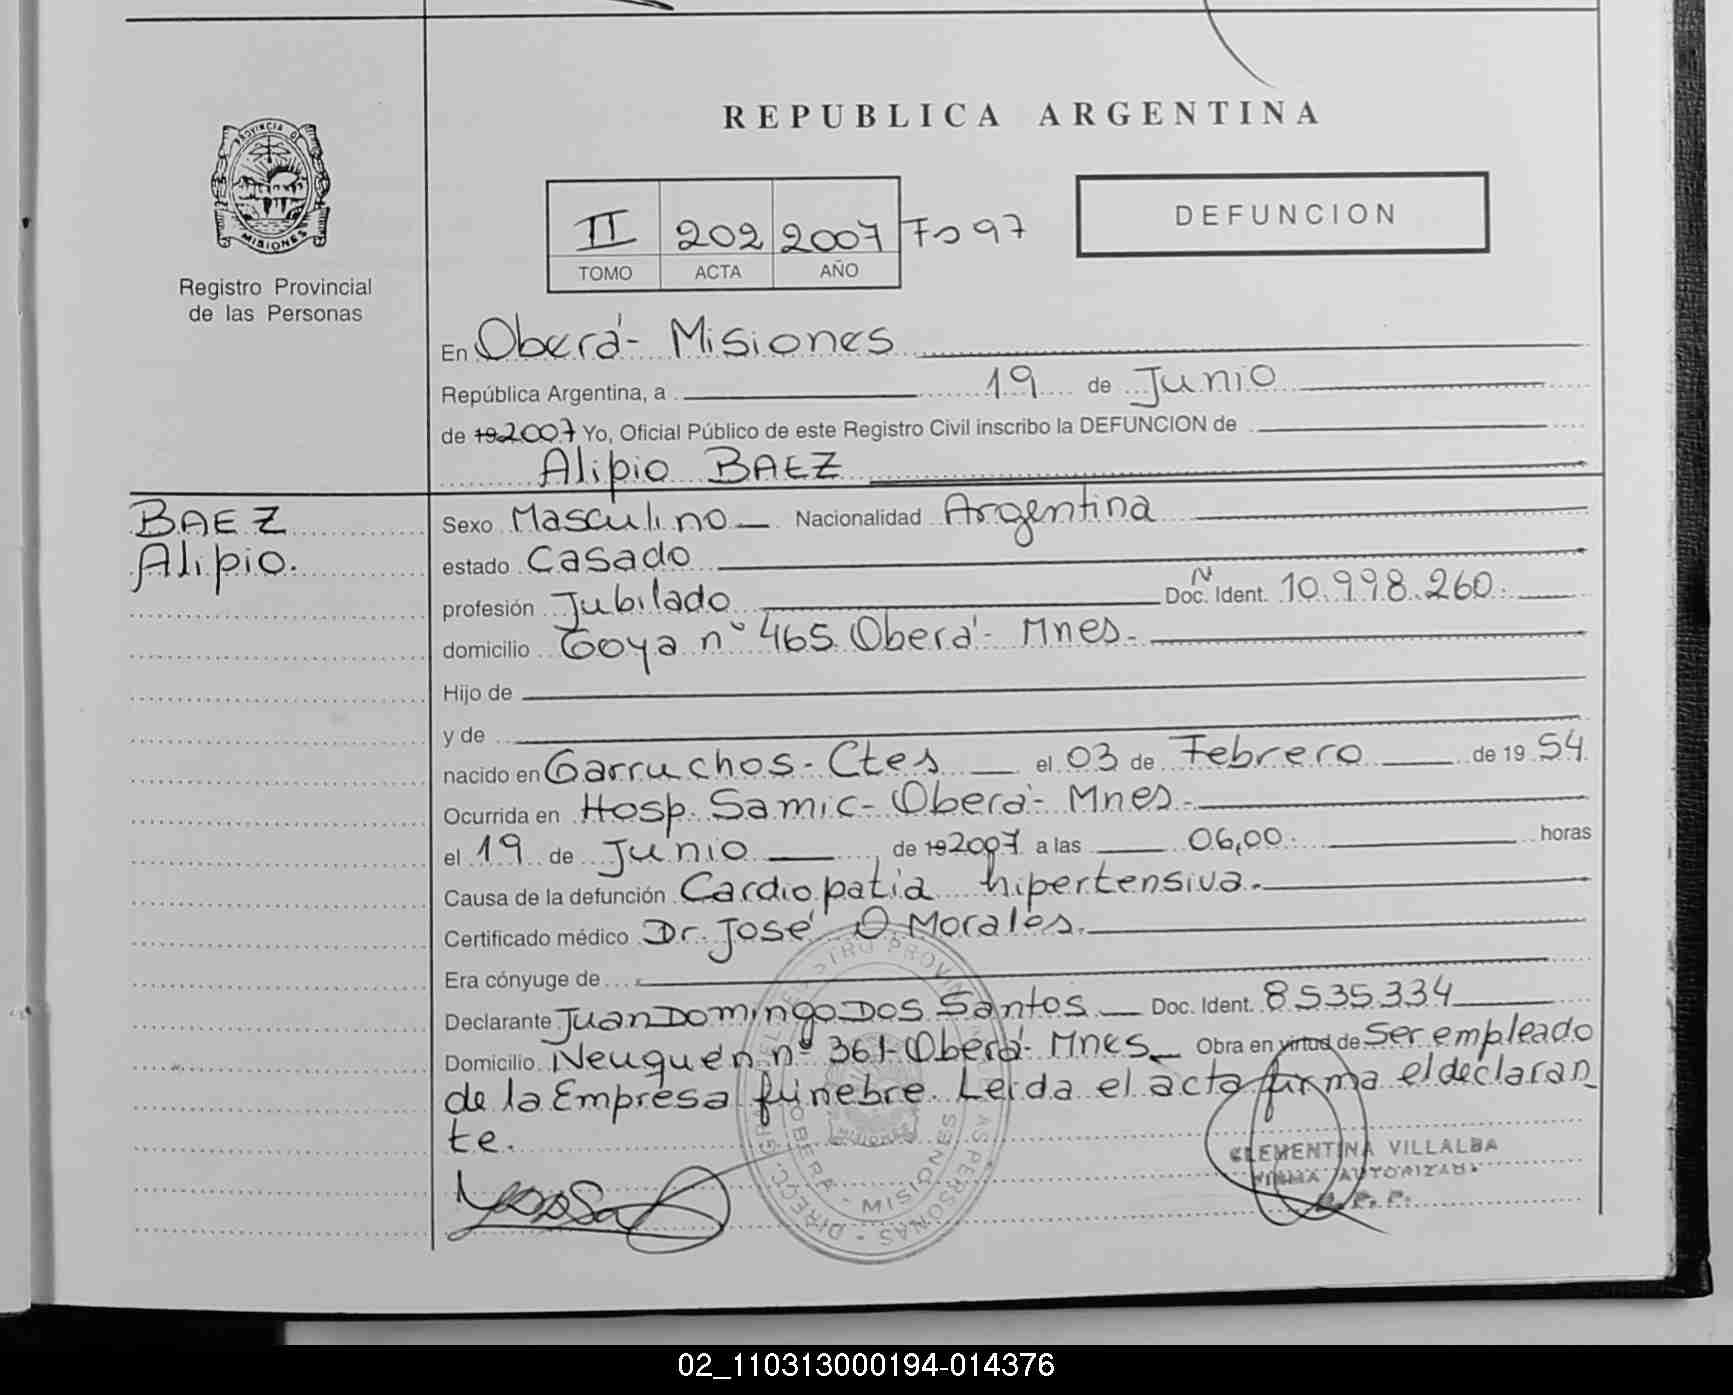 REPUBLICA ARGENTINA
PROVINCIA DE
MISIONES
Registro Provincial
de las Personas
II 202 2007 Fo 97
TOMO ACTA AÑO
DEFUNCION
En Oberá - Misiones
República Argentina, a 19 de Junio
de 192007 Yo, Oficial Público de este Registro Civil inscribo la DEFUNCION de
Alipio BAEZ
BAEZ
Alipio.
Sexo Masculino Nacionalidad Argentina
estado Casado
profesión Jubilado Doc. N Ident. 10.998.260.
domicilio Goya nº 465 Oberá - Mnes.
Hijo de
y de
nacido en Garruchos - Ctes el 03 de Febrero de 1954
Ocurrida en Hosp. Samic - Oberá - Mnes.
el 19 de Junio de 192007 a las 06,00. horas
Causa de la defunción Cardiopatia hipertensiva.
Certificado médico Dr. José O Morales.
Era cónyuge de
Declarante Juan Domingo Dos Santos Doc. Ident. 8535334
Domicilio Neuquén nº 361 - Oberá - Mnes Obra en virtud de Ser empleado
de la Empresa fúnebre. Leida el acta firma el declaran
te.
CLEMENTINA VILLALBA
FIRMA AUTORIZADA
R.P.P.
OBERA - MISIONES
02_110313000194-014376